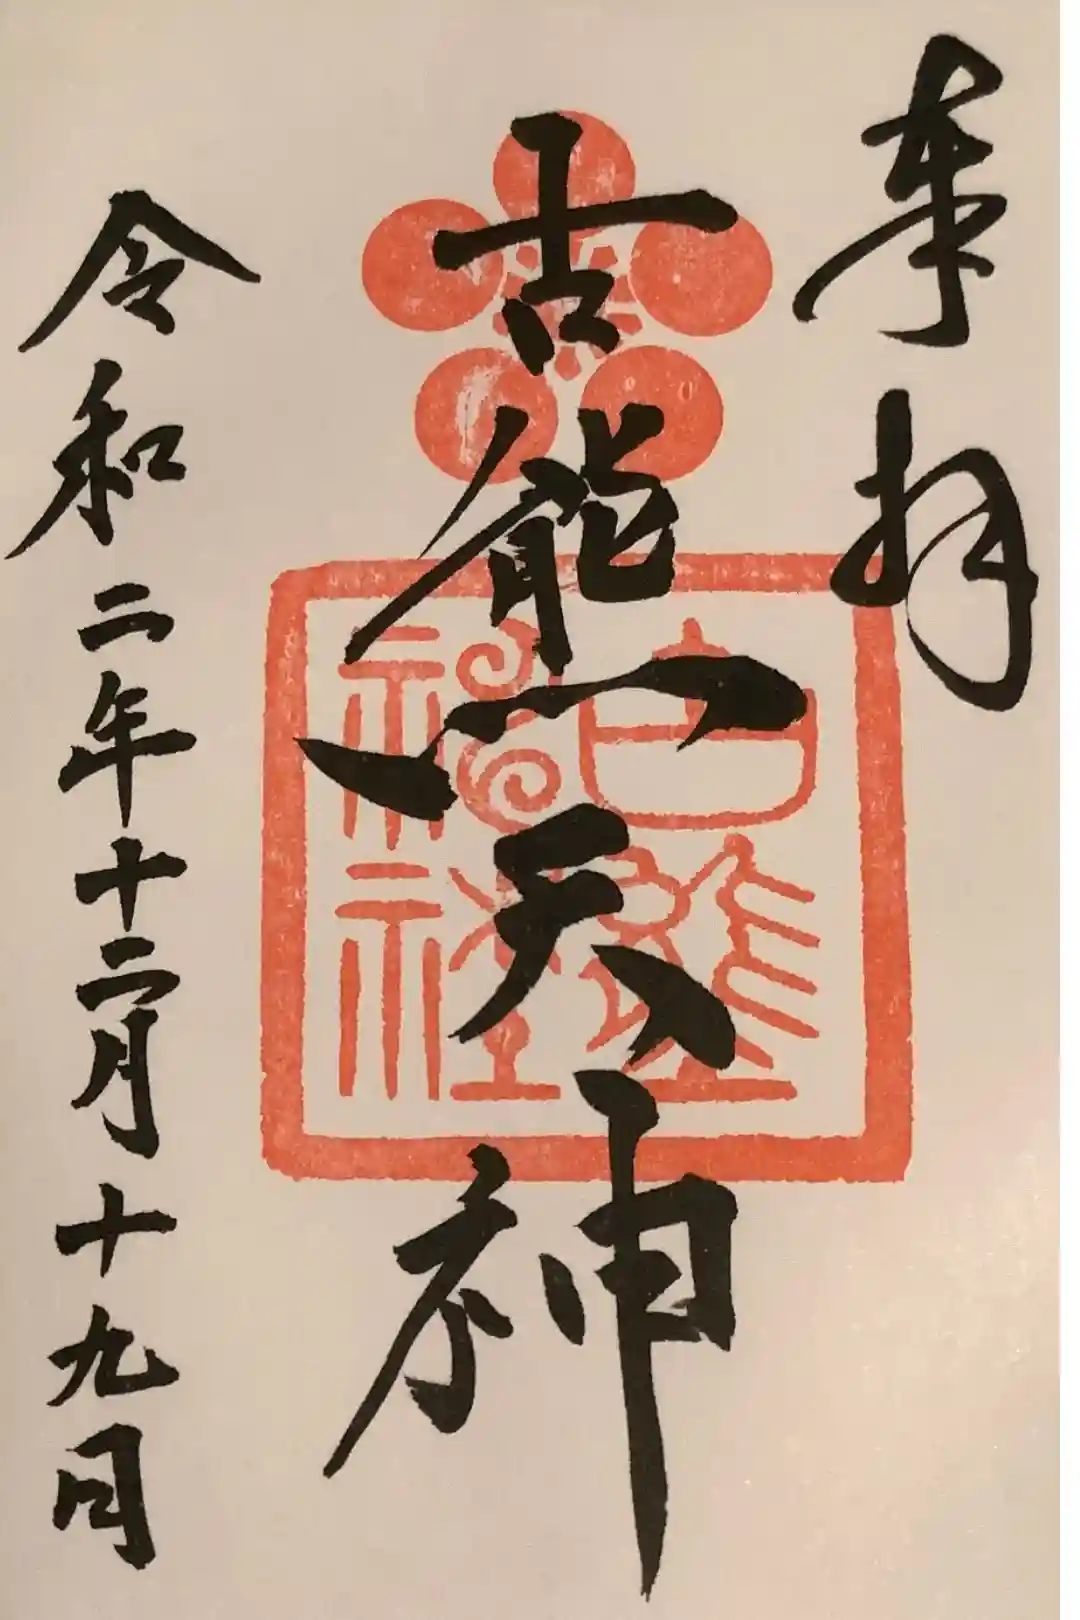 奉拝
古熊天神
古熊
神社
令和二年十二月十九日